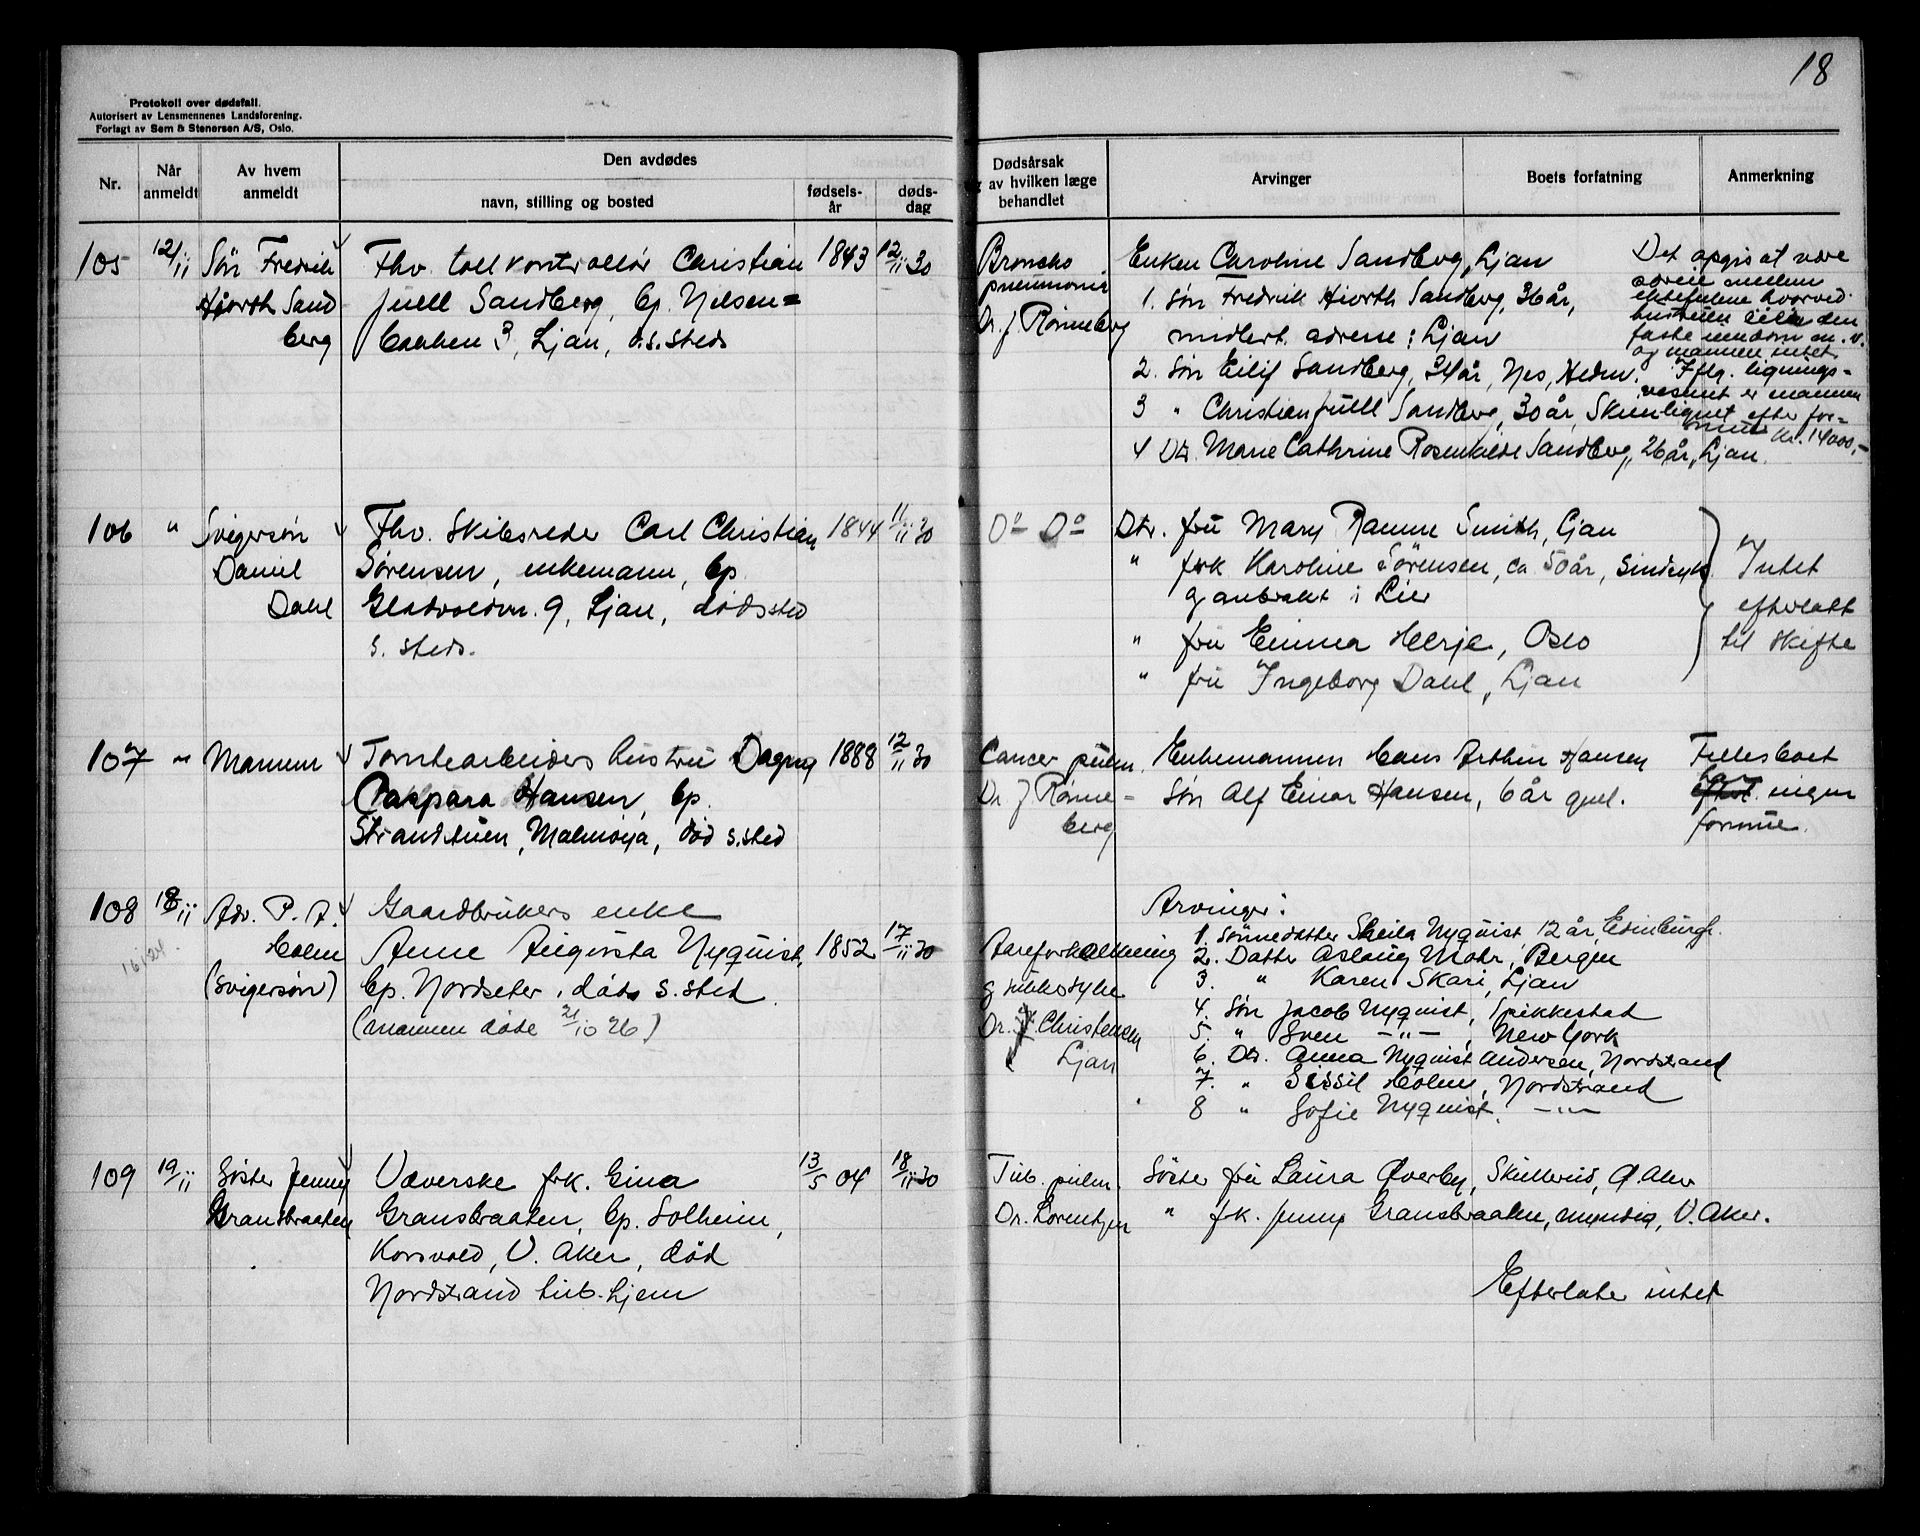 18
Protokoll over dødsfall.
Autorisert av Lensmennenes Landsforening.
Forlagt av Sem & Stenersen A/S, Oslo.
Nr.
Når anmeldt
Av hvem anmeldt
Den avdødes
navn, stilling og bosted
fødsels-år
døds-dag
Dødsårsak
og av hvilken læge
behandlet
Arvinger
Boets forfatning
Anmerkning
105 12/11 Søn Fredrik Fhv. tollkontrollør Christian 1843 12/11 30
Hjorth Sand Juell Sandberg, bp. Nilsen=
berg bakken 3, Ljan, d.s. steds
Broncho
pneumonia
Dr. J Rønneberg
Enken Caroline Sandberg, Ljan
1. søn Fredrik Hiorth Sandberg, 36 år,
midlert. adresse: Ljan
2. Søn Eilif Sandberg, 34 år, Nes, Hedm.
3 " Christian Juell Sandberg, 30 år, Ski
4 Dtr. Marie Cathrine Rosenkilde Sandberg, 26 år, Ljan.
Det opgis at være
særeie mellem
ektefellene hvorved
hustruen eier den
faste eiendom m.v.
og mannen intet.
Iflg. lignings=
vesenet er mannen
lignet efter for=
mue kr. 14000,-
106 " Svigersøn Fhv. Skibsreder Carl Christian 1844 11/11 30
Daniel Sørensen, enkemann, bp.
Dahl Gladvoldvn. 9, Ljan, dødssted
s. steds.
Do Do
Dtr. fru Mary Ramm Smith, Ljan
" frk Karoline Sørensen, ca 50 år, Sindsyk
og anbrakt i Lier
" fru Emma Herje, Oslo
" fru Ingeborg Dahl, Ljan
Intet
efterlatt
til skifte
107 " Mannen Tomtearbeiders hustru Dagny 1888 12/11 30
Caspara Hansen, bp.
Strandstuen, Malmøya, død s. sted
Cancer pulm.
Dr J Rønne-
berg
Enkemannen Hans Arthur Hansen
Søn Alf Einar Hansen, 6 år gml.
Fellesboet
har ingen
formue.
108 18/11 Adv. P. A. Gaardbrukers enke
Holm Anne Augusta Nyquist, 1852 17/11 30
(svigersøn) bp. Nordseter, døds s. sted.
(mannen døde 21/10 26)
16124.
Aareforkalkning
og sukkersyke
Dr. Christensen
Ljan
Arvinger:
1. Sønnedatter Sheila Nyquist, 12 år, Edinburgh.
2. Datter Aslaug Mohr, Bergen
3. " Karen Skari, Ljan
4. Søn Jacob Nyquist, Spikkestad
5. " Sven —"—, New York
6. Dtr. Anna Nyquist Andersen, Nordstrand
7. " Sissil Holm, Nordstrand
8 " Sofie Nyquist. —"—
109 19/11 Søster Jenny Væverske frk. Gina 13/5 04 18/11 30
Gransbraaten Gransbraaten, bp. Solheim,
Korsvold, V. Aker, død
Nordstrand tub. hjem
Tub. pulm.
Dr. Lorentzen
Søster fru Laura Øverby, Skullerud, Ø. Aker
" frk. Jenny Gransbraaten, myndig, V. Aker.
Efterlater intet